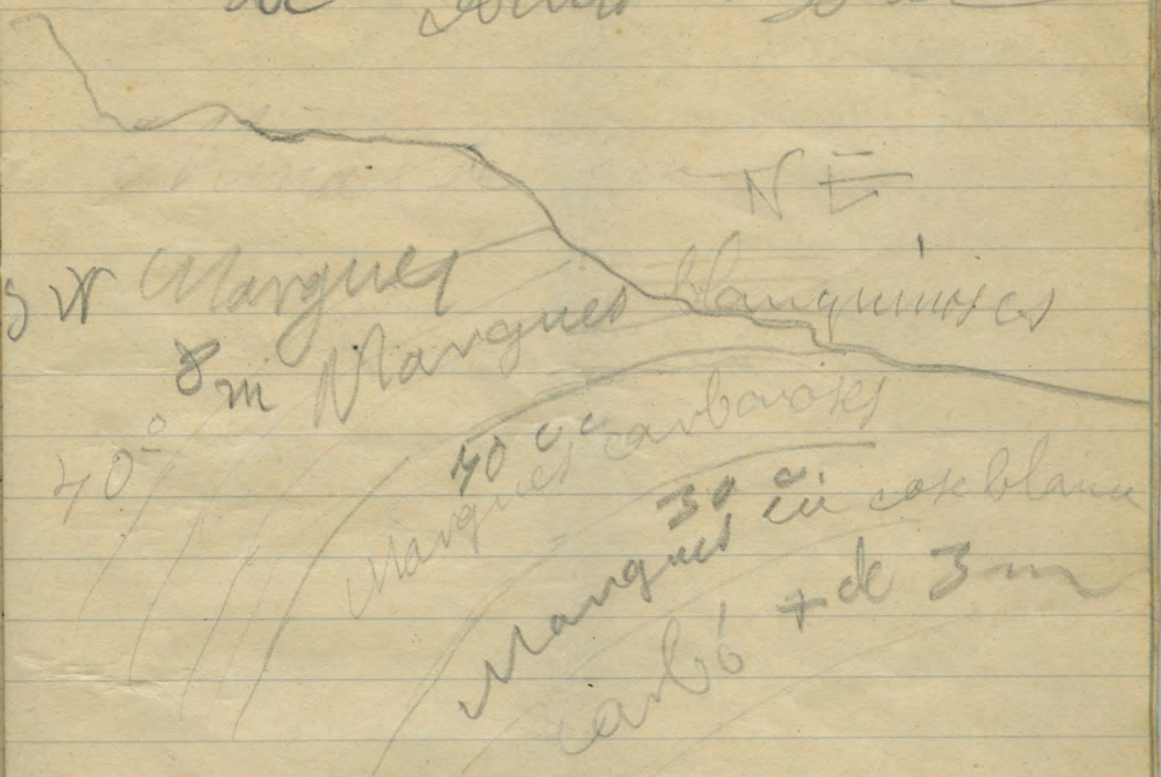 NE
SW Margues
blanquinoses
8 m Margues
40°
40 cm
Margues carbonoses
30 cm
Margues
blanca
Carbó + de 3 m